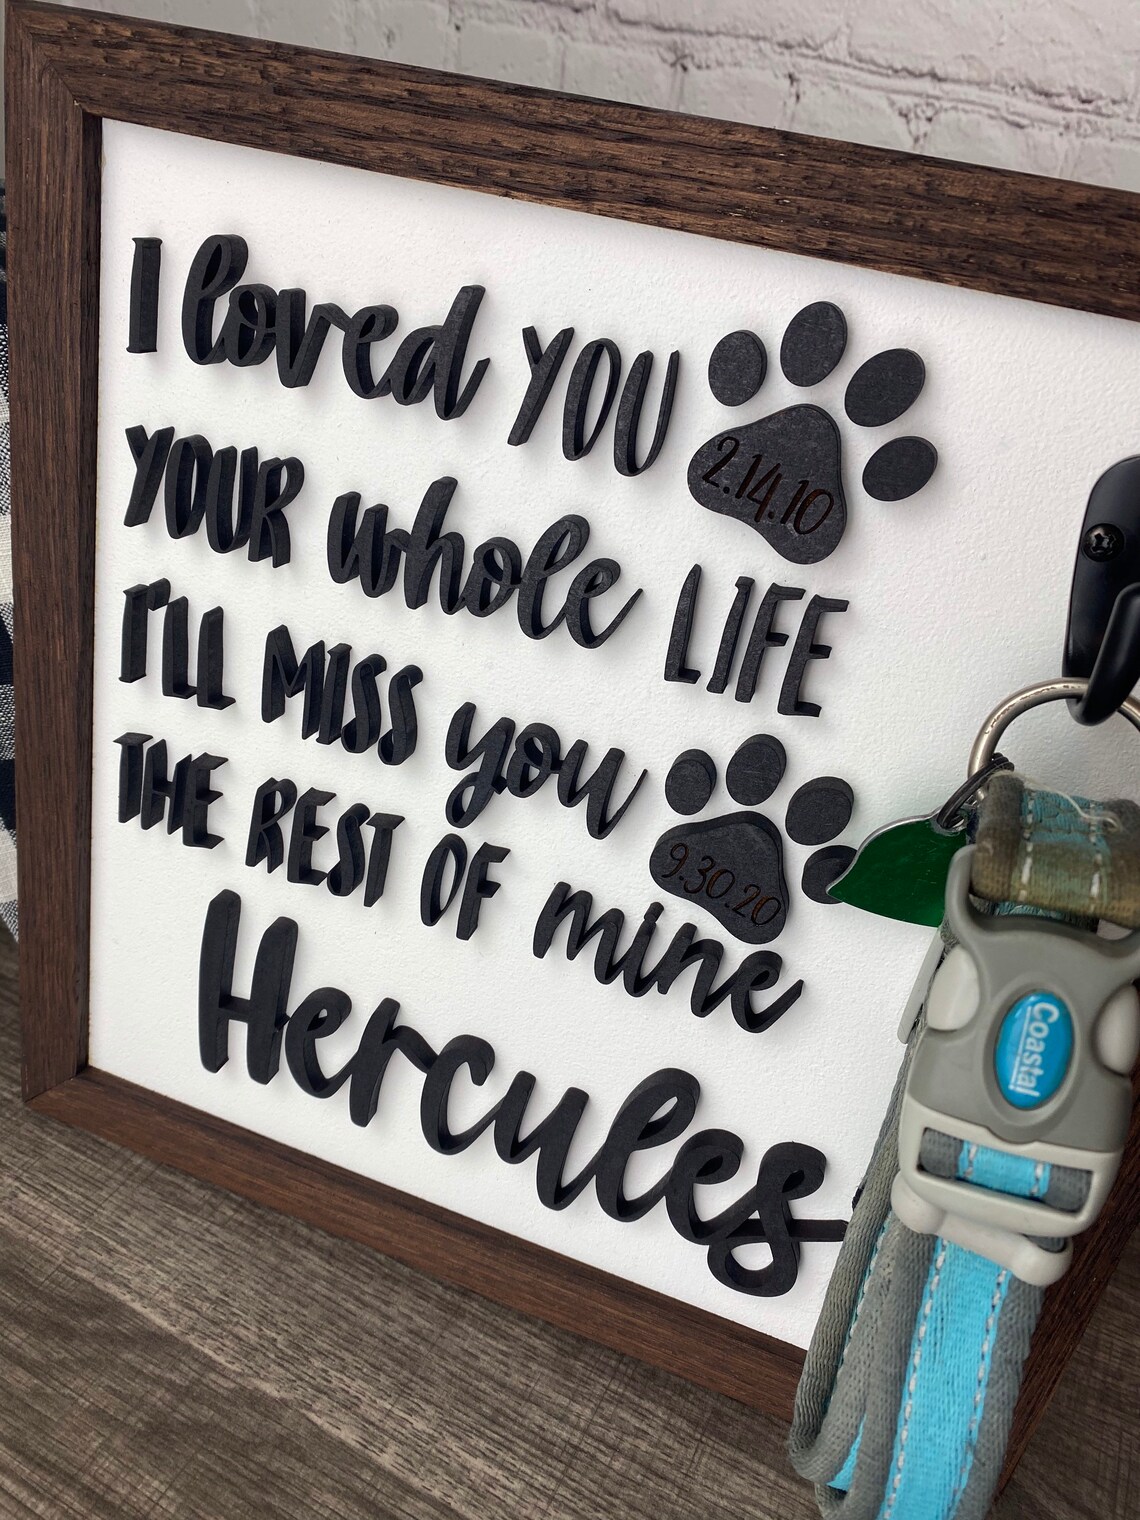 I loved YOU
2.14.10
YOUR whole LIFE
I'LL MISS you
9.30.20
THE REST OF mine
Hercules
Coastal